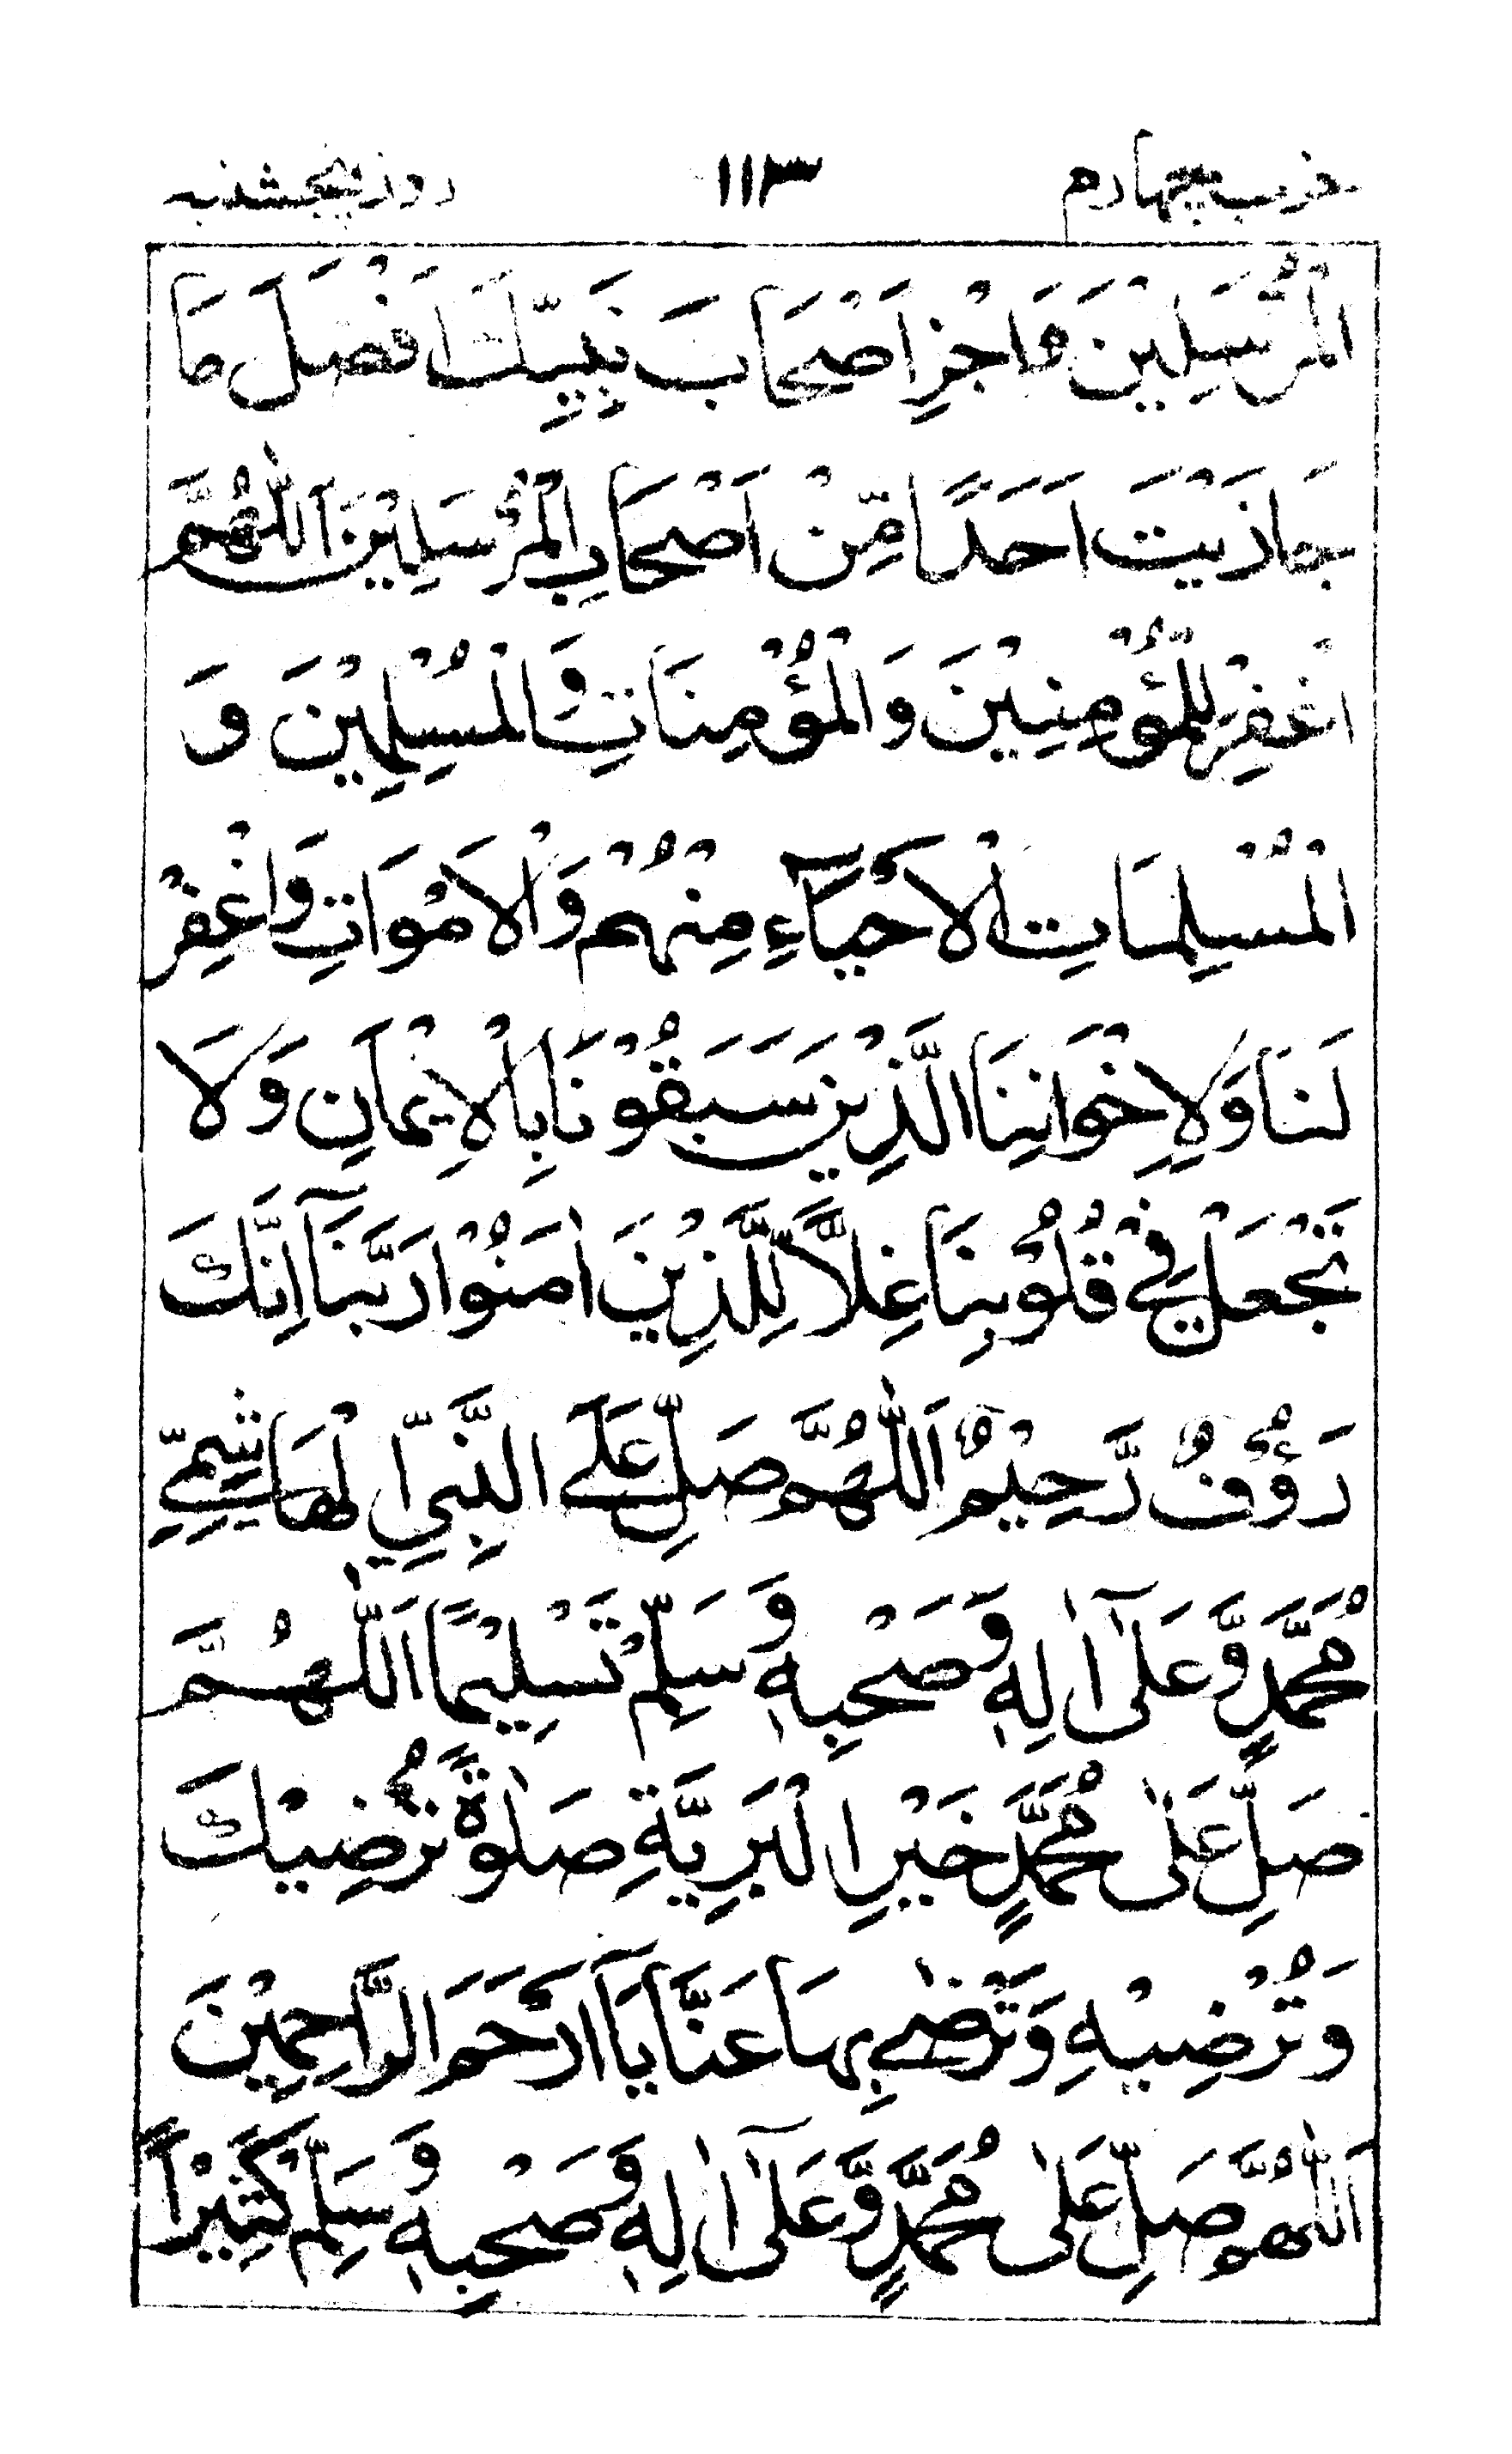 حزب چهارم ۱۱۳ روز پنجشنبه
الْمُرْسَلِيْنَ وَاجْزِ اَصْحَابَ نَبِيِّكَ اَفْضَلَ مَا
جَازَيْتَ اَحَدًا مِّنْ اَصْحَابِ الْمُرْسَلِيْنَ اَللّٰهُمَّ
اغْفِرْ لِلْمُؤْمِنِيْنَ وَالْمُؤْمِنَاتِ وَالْمُسْلِمِيْنَ وَ
الْمُسْلِمَاتِ الْاَحْيَآءِ مِنْهُمْ وَالْاَمْوَاتِ وَاغْفِرْ
لَنَا وَلِاِخْوَانِنَا الَّذِيْنَ سَبَقُوْنَا بِالْاِيْمَانِ وَلَا
تَجْعَلْ فِيْ قُلُوْبِنَا غِلًّا لِّلَّذِيْنَ اٰمَنُوْا رَبَّنَآ اِنَّكَ
رَؤُفٌ رَّحِيْمٌ اَللّٰهُمَّ صَلِّ عَلَى النَّبِيِّ الْهَاشِمِيِّ
مُحَمَّدٍ وَّعَلٰٓى اٰلِهٖ وَصَحْبِهٖ وَسَلِّمْ تَسْلِيْمًا اَللّٰهُمَّ
صَلِّ عَلٰى مُحَمَّدٍ خَيْرِ الْبَرِيَّةِ صَلٰوةً تُرْضِيْكَ
وَتُرْضِيْهِ وَتَرْضٰى بِهَا عَنَّا يَآ اَرْحَمَ الرَّاحِمِيْنَ
اَللّٰهُمَّ صَلِّ عَلٰى مُحَمَّدٍ وَّعَلٰٓى اٰلِهٖ وَصَحْبِهٖ وَسَلِّمْ كَثِيْرًا